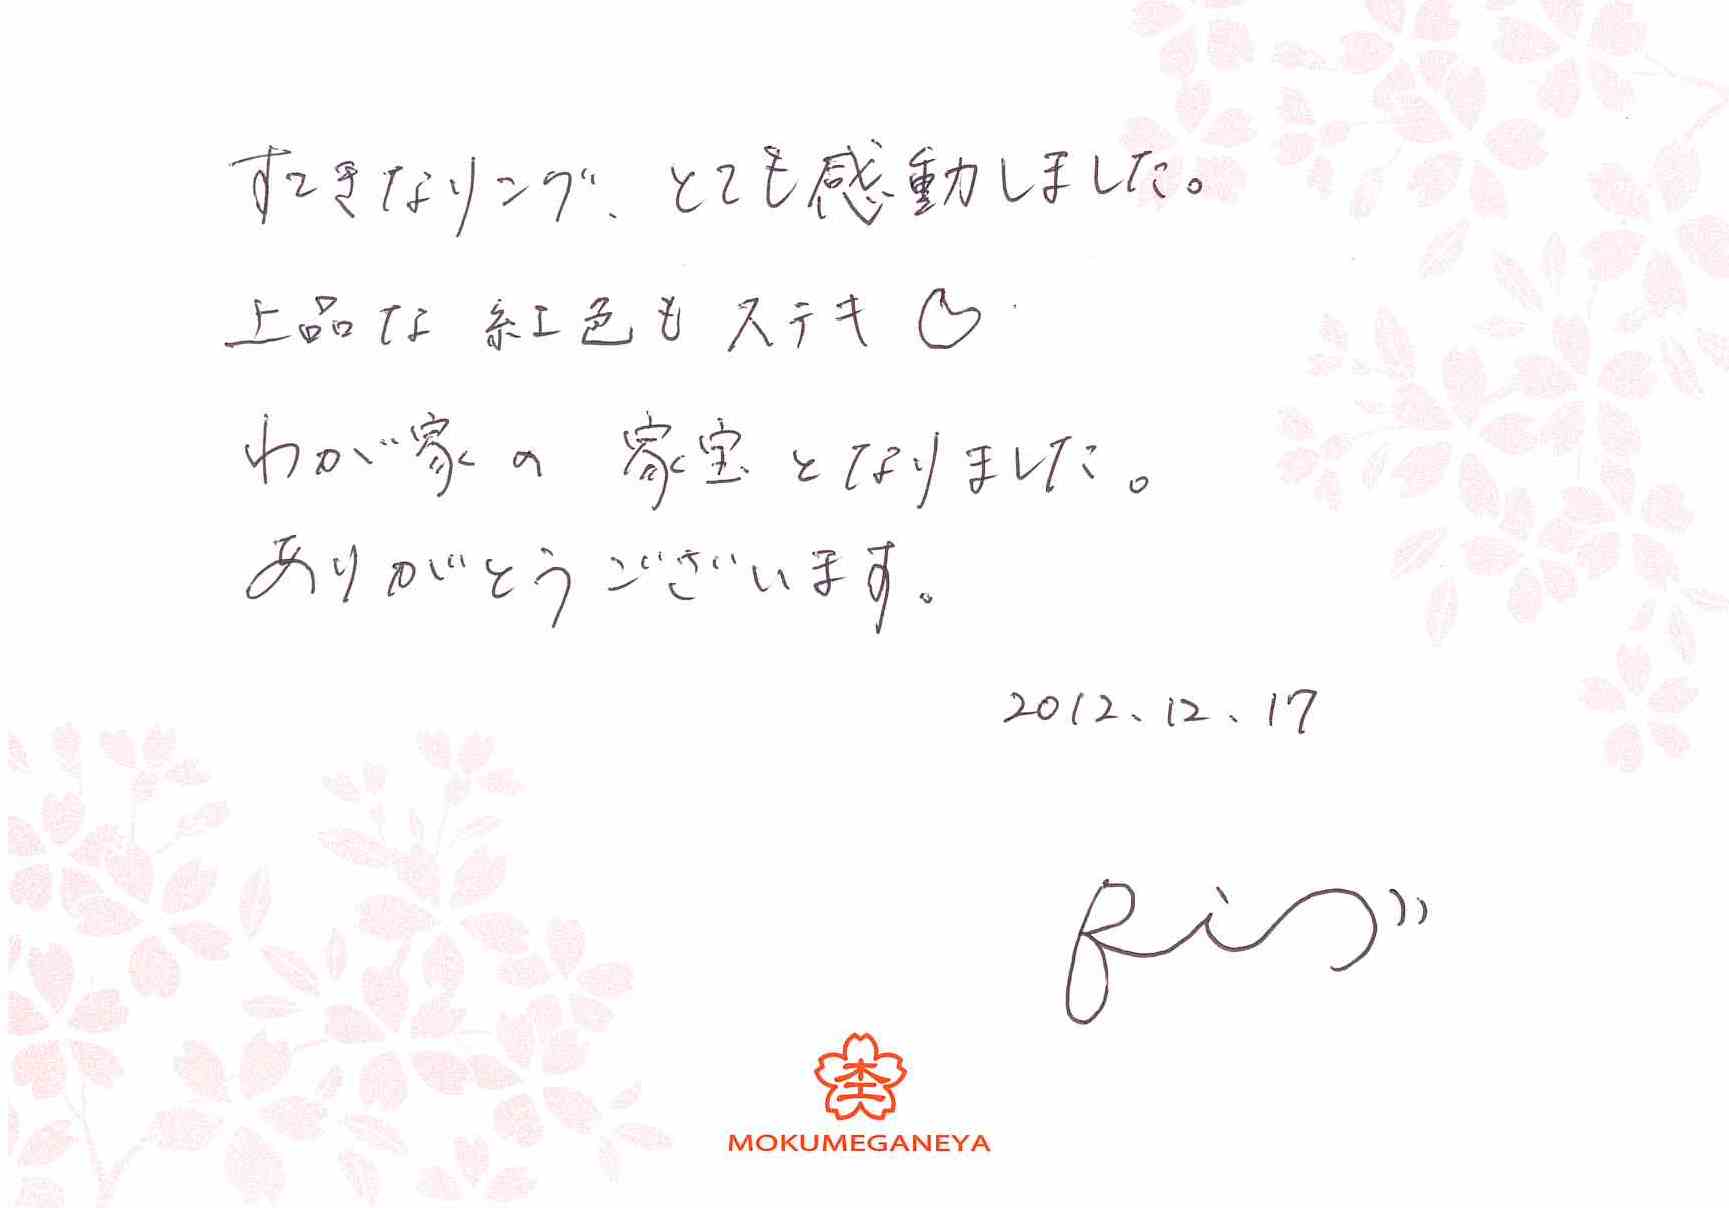 すてきなリング、とても感動しました。
上品な紅色もステキ♡
わが家の家宝となりました。
ありがとうございます。
2012、12、17
MOKUMEGANEYA